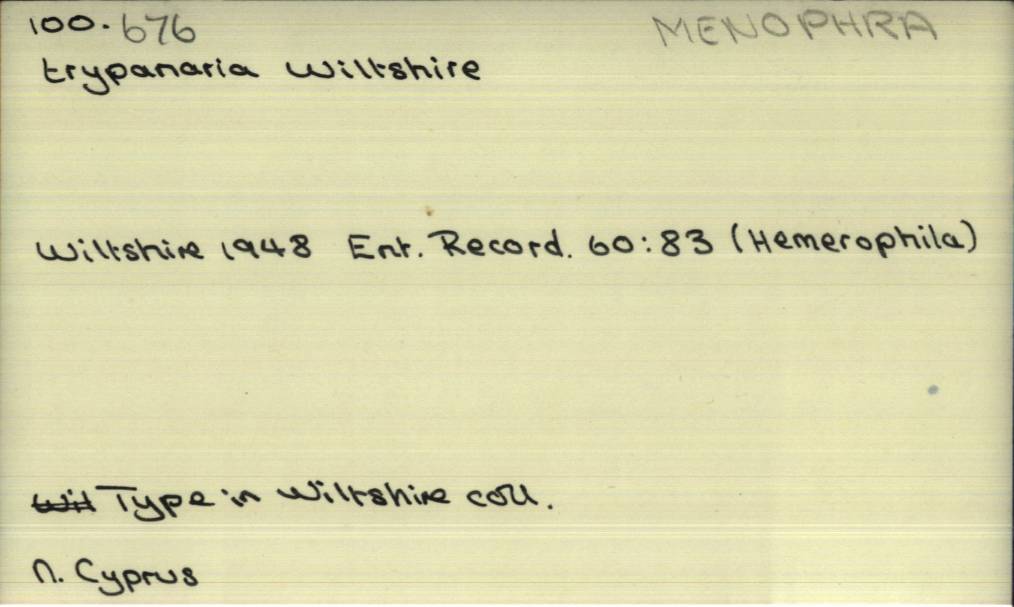 100.676 MENOPHRA
trypanaria Wiltshire
Wiltshire 1948 Ent. Record. 60:83 (Hemerophila)
Wit Type in Wiltshire coll.
N. Cyprus